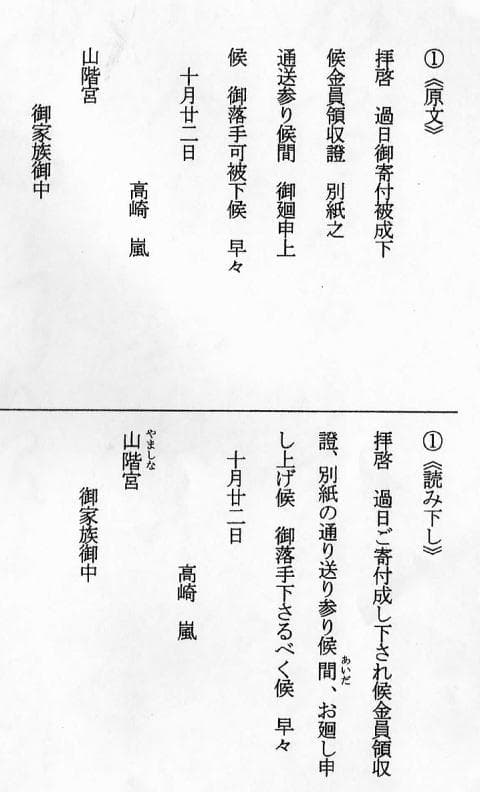 ①《原文》
拝啓　過日御寄付被成下
候金員領収證　別紙之
通送参り候間　御廻申上
候　御落手可被下候　早々
十月廿二日
高崎　嵐
山階宮
御家族御中
①《読み下し》
拝啓　過日ご寄付成し下され候金員領収
證、別紙の通り送り参り候間、お廻し申
あいだ
し上げ候　御落手下さるべく候　早々
十月廿二日
高崎　嵐
山階宮
やましな
御家族御中